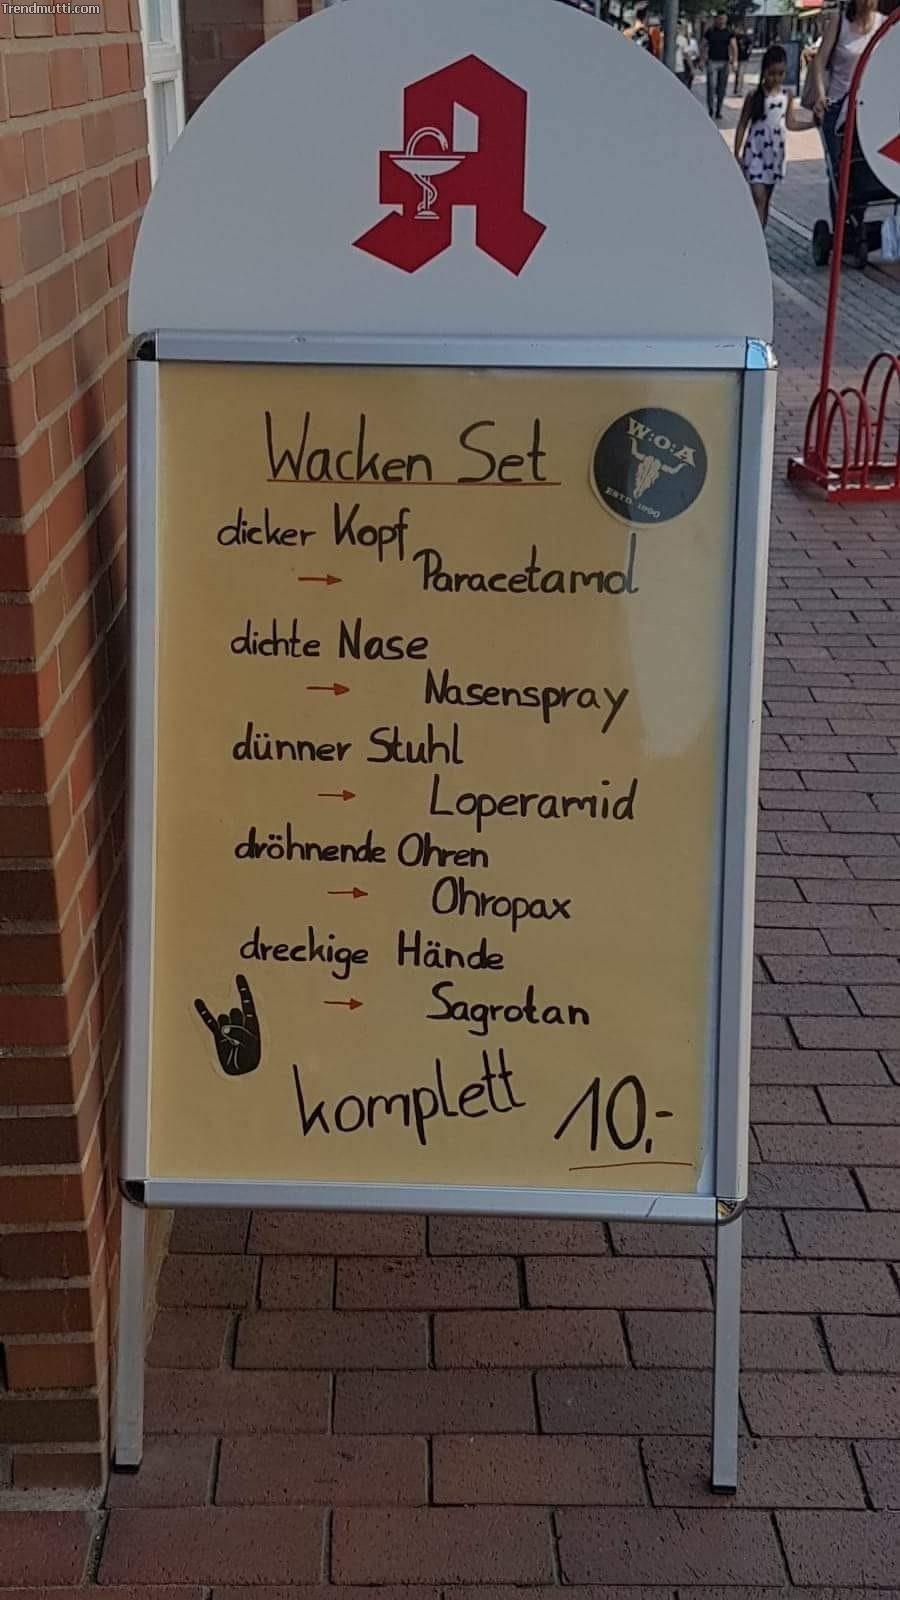 Trendmutti.com
Wacken Set
W:O:A
ESTD. 1990
dicker Kopf
→ Paracetamol
dichte Nase
→ Nasenspray
dünner Stuhl
→ Loperamid
dröhnende Ohren
→ Ohropax
dreckige Hände
→ Sagrotan
komplett 10,-